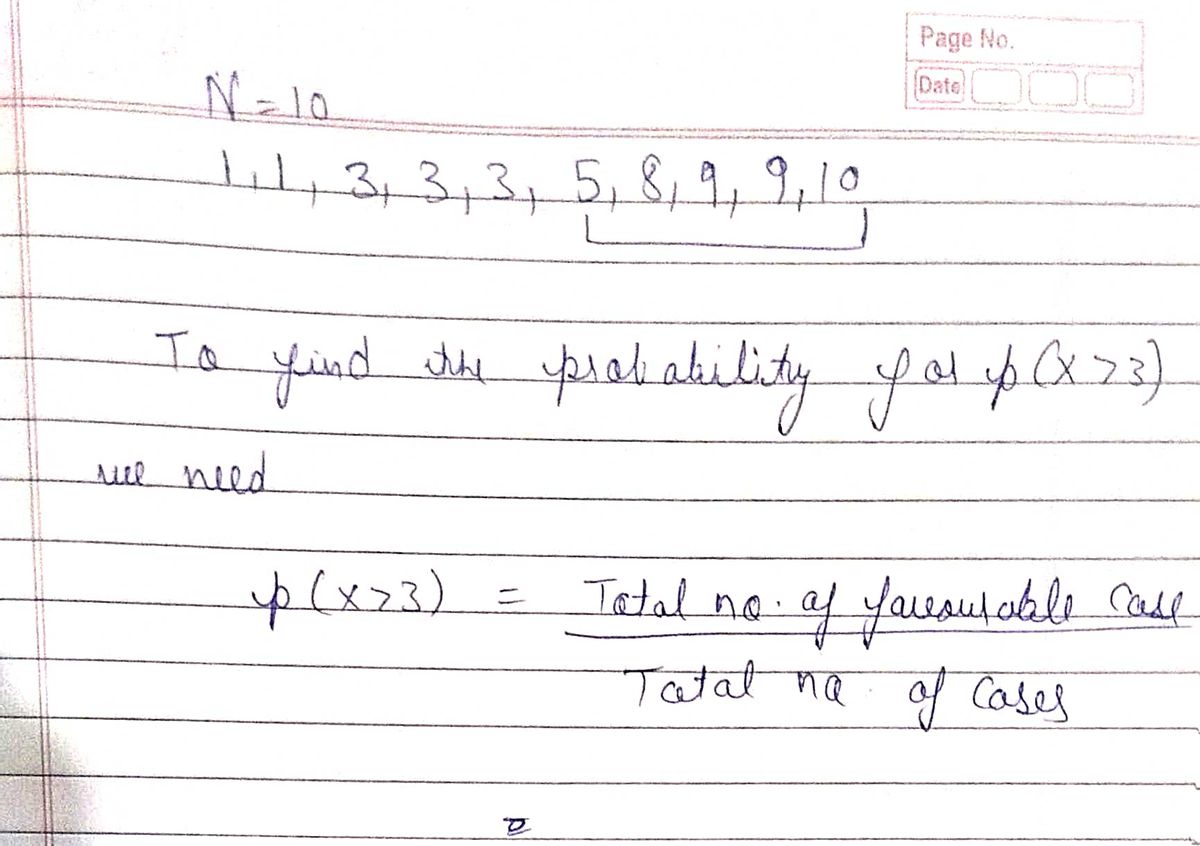 Page No.
Date
N = 10
1, 1, 3, 3, 3, 5, 8, 9, 9, 10
To find the probability for p(x>3)
we need
p(x>3) = Total no. of favourable Case
Total no. of Cases
=